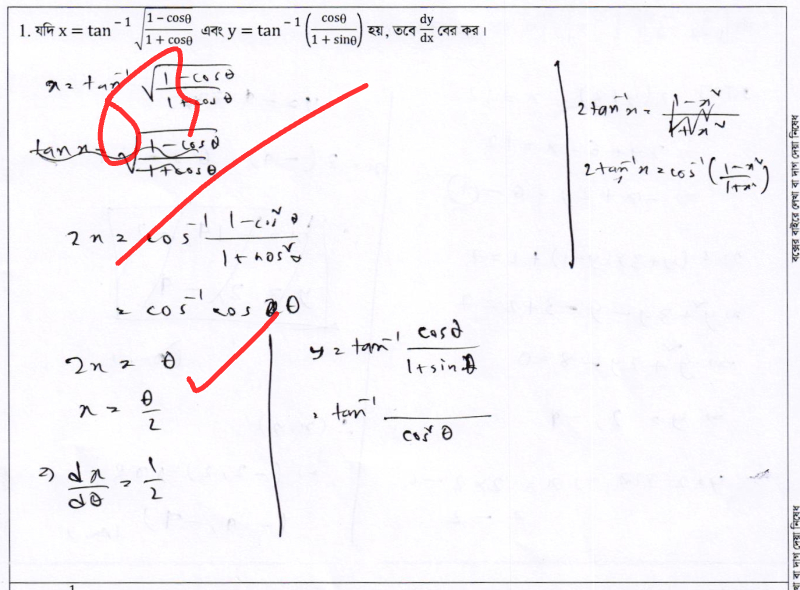 1. যদি x = tan⁻¹ √((1 − cosθ)/(1 + cosθ)) এবং y = tan⁻¹ (cosθ/(1 + sinθ)) হয়, তবে dy/dx বের কর।
x = tan⁻¹ √((1 − cosθ)/(1 + cosθ))
tan x = √((1 − cosθ)/(1 + cosθ))
2x = cos⁻¹ (1 − cos²θ)/(1 + cos²θ)
= cos⁻¹ cos θ
2x = θ
x = θ/2
⇒ dx/dθ = 1/2
y = tan⁻¹ cosθ/(1 + sinθ)
= tan⁻¹ /cos²θ
2 tan⁻¹ x = (1 − x²)/(1 + x²)
2 tan⁻¹ x = cos⁻¹ ((1 − x²)/(1 + x²))
বক্সের বাইরে লেখা বা দাগ দেয়া নিষেধ
বা দাগ দেয়া নিষেধ